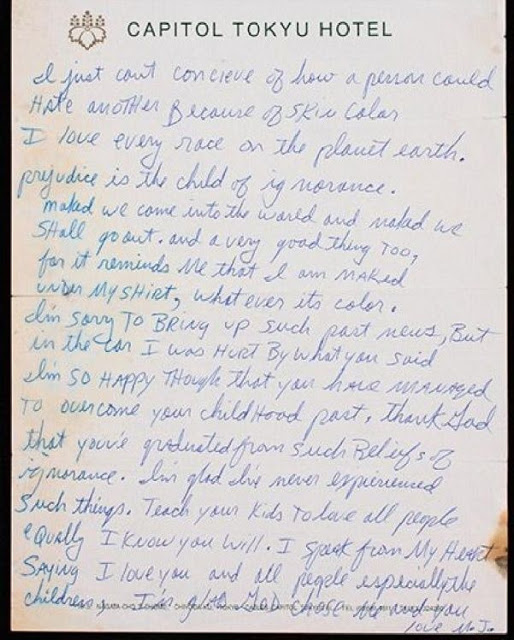 CAPITOL TOKYU HOTEL
I just can't concieve of how a person could
Hate another Because of Skin Color
I love every race on the planet earth.
prejudice is the child of ignorance.
naked we come into the world and naked we
shall go out. and a very good thing too,
for it reminds Me that I am NAKed
under My SHIRT, whatever its color.
I'm sorry To Bring up such past news, But
in the car I was Hurt By what you said
I'm SO HAPPY THough that you have MANAGED
To overcome your childHood past, thank God
that you've graduated from such Beliefs of
ignorance. I'm glad I've never experienced
such things. Teach your kids To love all people
equally I know you will. I speak from My Heart
Saying I love you and all people especially the
children I'm glad God chose Me and you
love M.J.